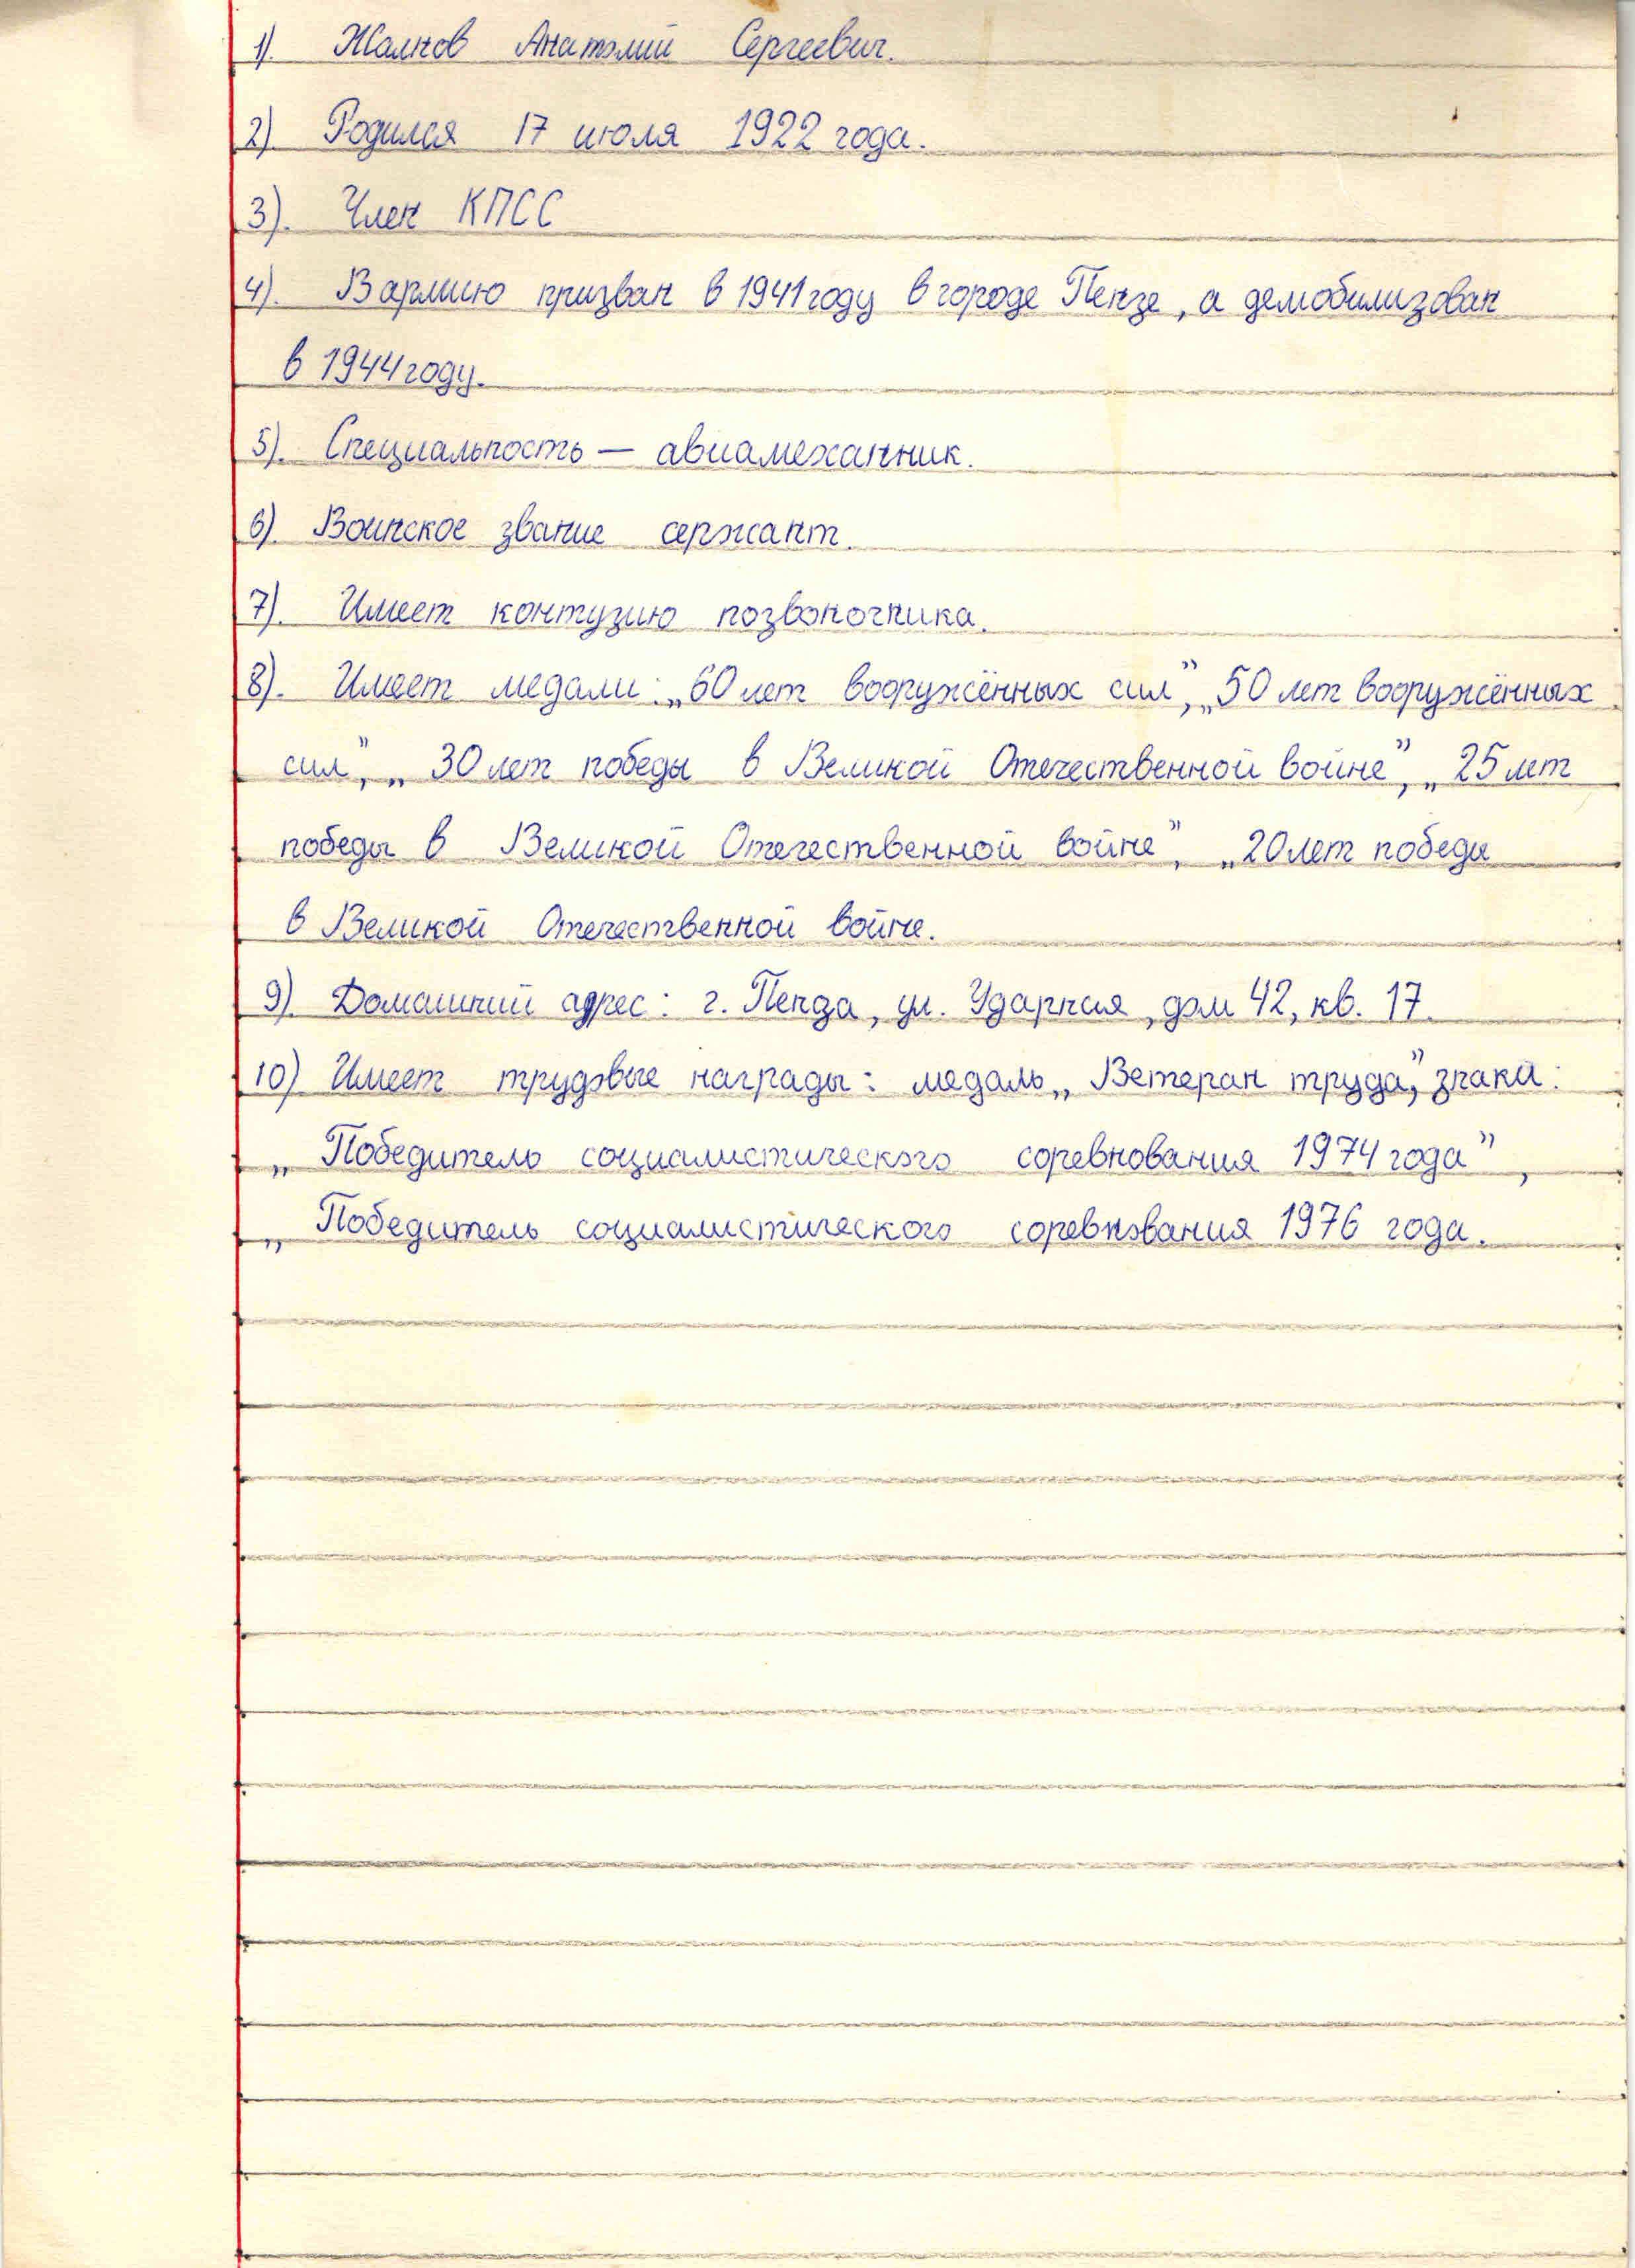 1). Жалнов Анатолий Сергеевич.
2) Родился 17 июля 1922 года.
3). Член КПСС
4). В армию призван в 1941 году в городе Пензе, а демобилизован
в 1944 году.
5). Специальность — авиамеханник.
6). Воинское звание сержант.
7). Имеет контузию позвоночника.
8). Имеет медали: „60 лет вооружённых сил”, „50 лет вооружённых
сил”, „30 лет победы в Великой Отечественной войне”, „25 лет
победы в Великой Отечественной войне”, „20 лет победы
в Великой Отечественной войне.
9). Домашний адрес: г. Пенза, ул. Ударная, дом 42, кв. 17.
10) Имеет трудовые награды: медаль „Ветеран труда”, знаки:
„Победитель социалистического соревнования 1974 года”,
„Победитель социалистического соревнования 1976 года.